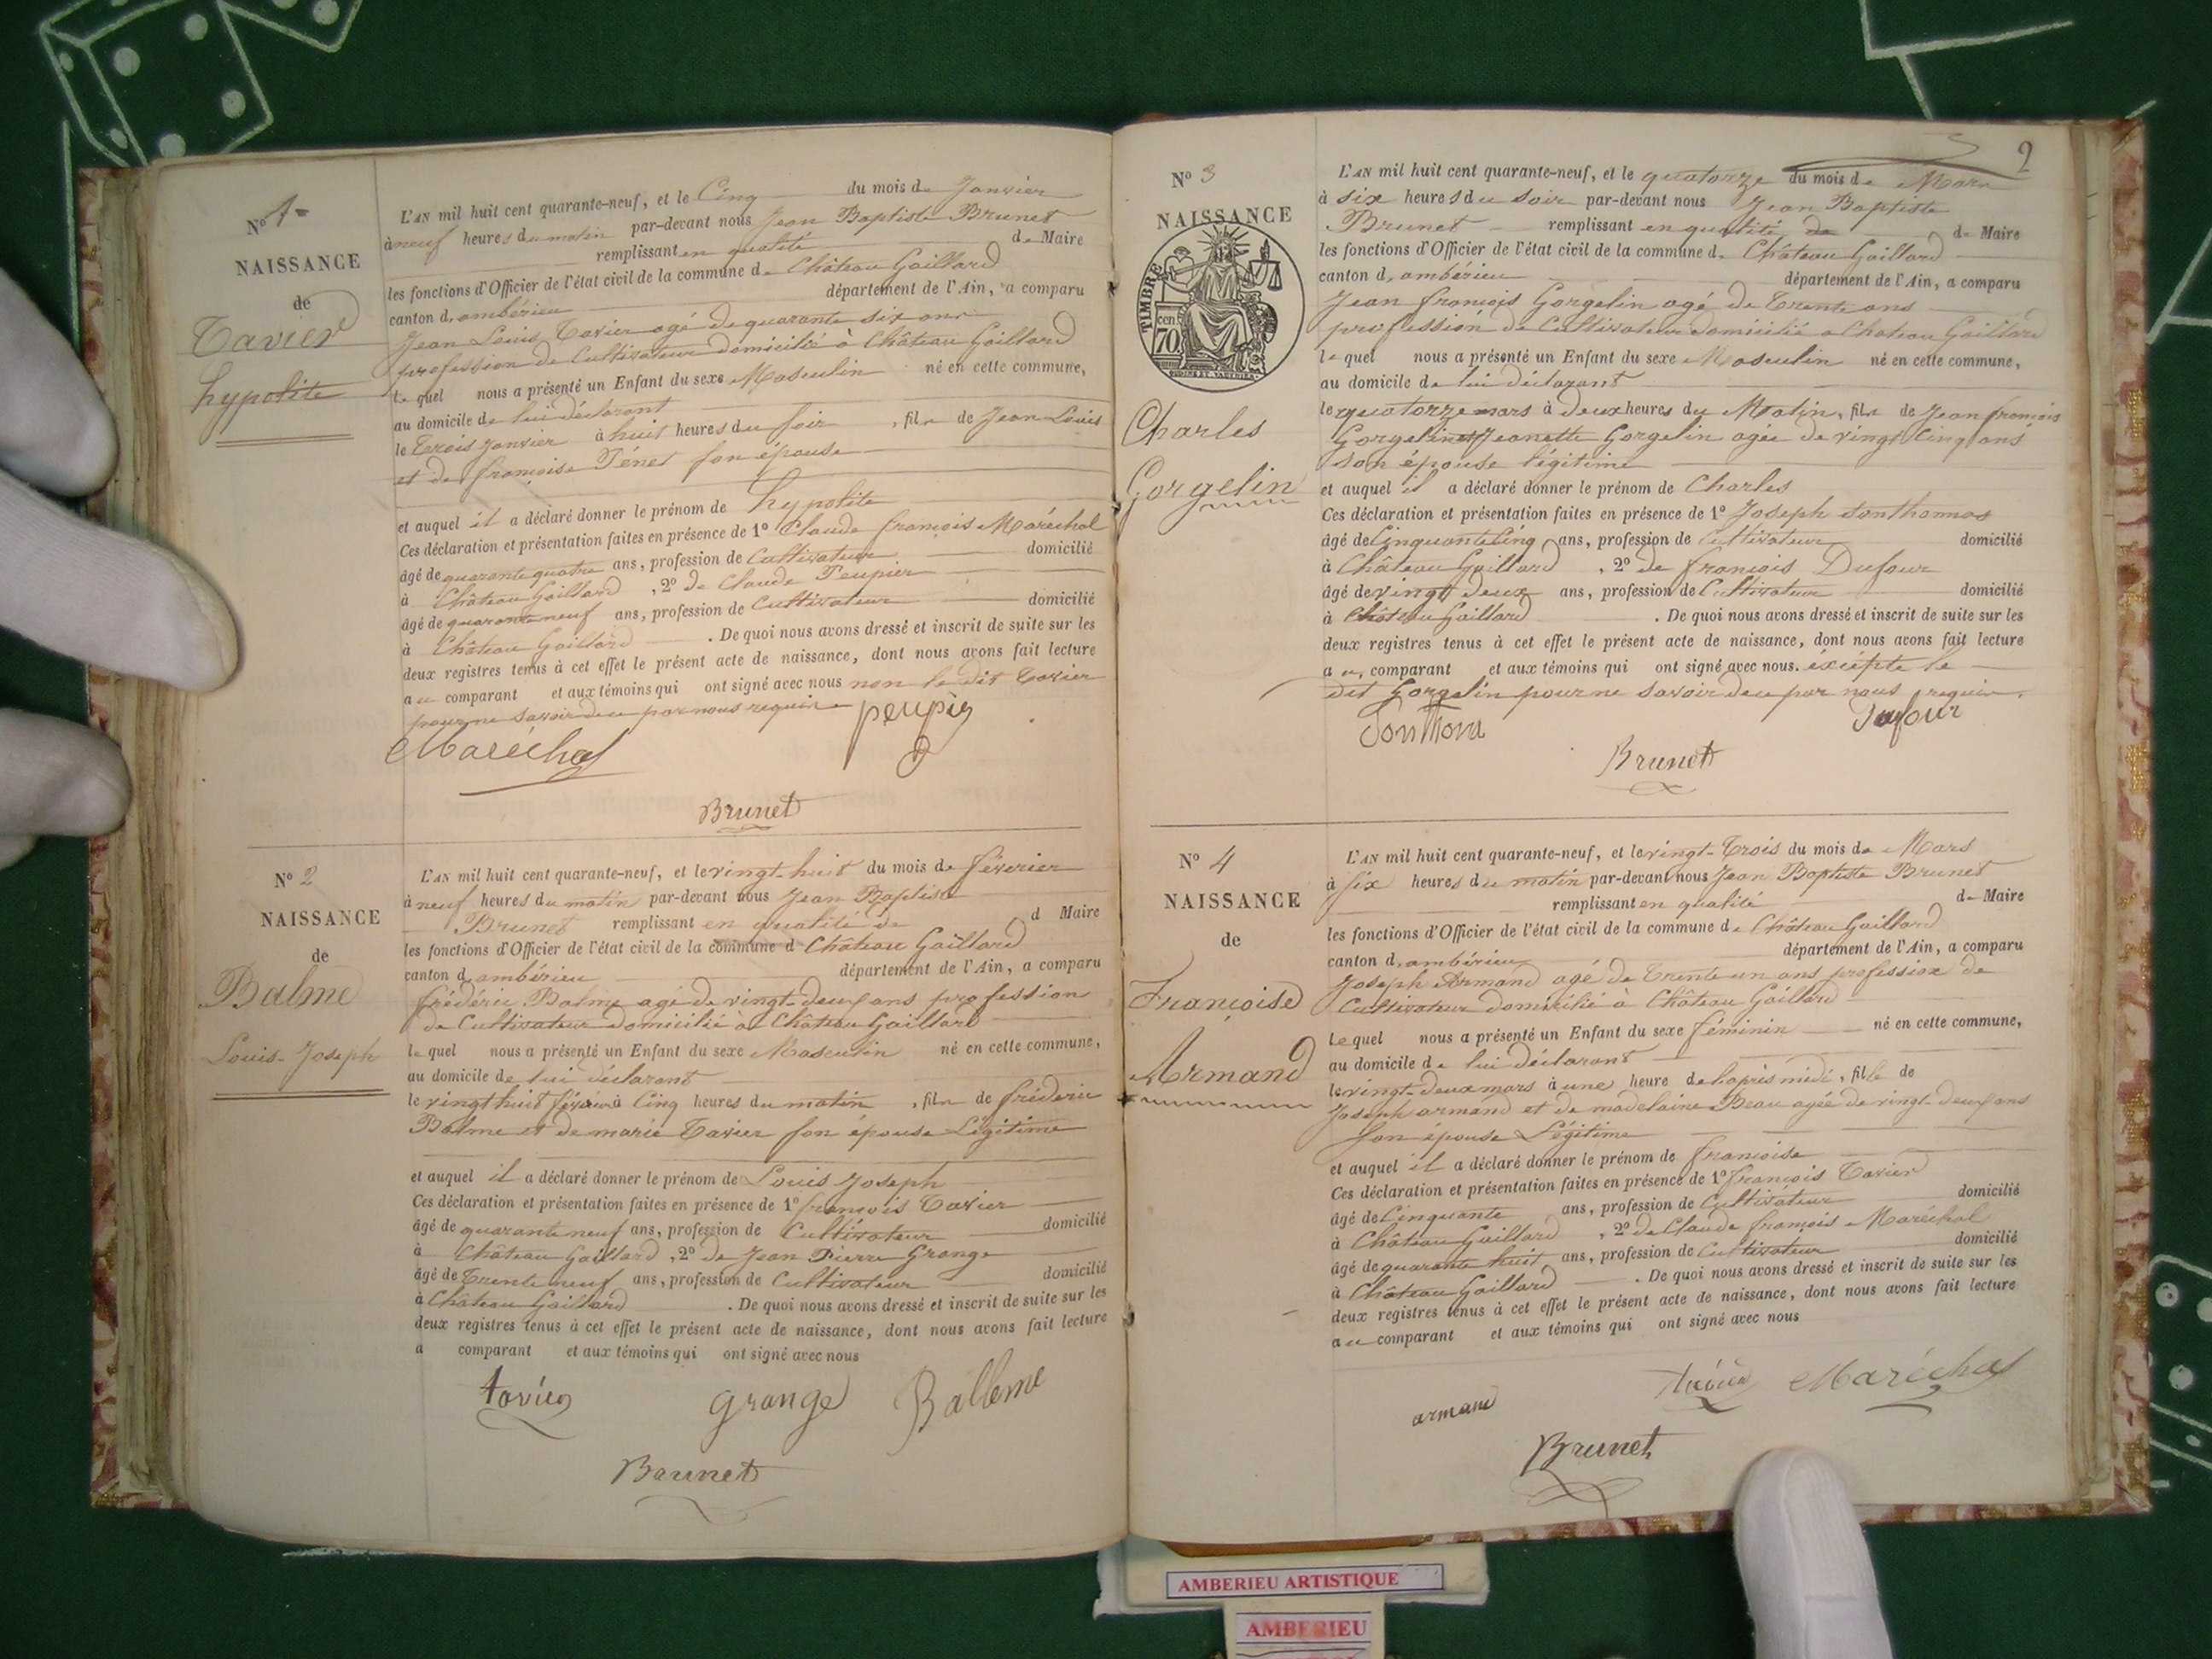 N° 1
NAISSANCE
de
Tavier
hypolite
L'AN mil huit cent quarante-neuf, et le Cinq du mois de Janvier
à neuf heures du matin par-devant nous Jean Baptiste Brunet
remplissant en qualité de Maire
les fonctions d'Officier de l'état civil de la commune de Château Gaillard
canton d'ambérieu département de l'Ain, a comparu
Jean Louis Tavier agé de quarante six ans
profession de Cultivateur domicilié à Château Gaillard
lequel nous a présenté un Enfant du sexe Masculin né en cette commune,
au domicile de lui déclarant
le Trois Janvier à huit heures du soir, fils de Jean Louis
et de françoise Ténet son épouse
et auquel il a déclaré donner le prénom de hypolite
Ces déclaration et présentation faites en présence de 1° Claude françois Maréchal
âgé de quarante quatre ans, profession de Cultivateur domicilié
à Château Gaillard, 2° de Claude Peupier
âgé de quarante neuf ans, profession de Cultivateur domicilié
à Château Gaillard. De quoi nous avons dressé et inscrit de suite sur les
deux registres tenus à cet effet le présent acte de naissance, dont nous avons fait lecture
au comparant et aux témoins qui ont signé avec nous non le dit Tavier
pour ne savoir de ce par nous requis
Maréchal
Brunet
N° 2
NAISSANCE
de
Balme
Louis-Joseph
L'AN mil huit cent quarante-neuf, et le vingt-huit du mois de féverier
à neuf heures du matin par-devant nous Jean Baptiste
Brunet remplissant en qualité de d Maire
les fonctions d'Officier de l'état civil de la commune d Château Gaillard
canton d'ambérieu département de l'Ain, a comparu
frédéric Balme agé de vingt-deux ans profession
de Cultivateur domicilié à Château Gaillard
lequel nous a présenté un Enfant du sexe Masculin né en cette commune,
au domicile de lui déclarant
le vingt huit féverier à Cinq heures du matin, fils de fréderic
Balme et de marie Tavier son epouse Légitime
et auquel il a déclaré donner le prénom de Louis Joseph
Ces déclaration et présentation faites en présence de 1° françois Tavier
âgé de quarante neuf ans, profession de Cultivateur domicilié
à Château Gaillard, 2° de Jean Pierre Grange
âgé de Trente neuf ans, profession de Cultivateur domicilié
à Château Gaillard. De quoi nous avons dressé et inscrit de suite sur les
deux registres tenus à cet effet le présent acte de naissance, dont nous avons fait lecture
a comparant et aux témoins qui ont signé avec nous
tavier grange Balleme
Brunet
2
N° 3
NAISSANCE
TIMBRE
70 cen
Charles
Gorgelin
L'AN mil huit cent quarante-neuf, et le quatorze du mois de Mars
à six heures du soir par-devant nous Jean Baptiste
Brunet remplissant en qualité de de Maire
les fonctions d'Officier de l'état civil de la commune de Château Gaillard
canton d'ambérieu département de l'Ain, a comparu
Jean françois Gorgelin agé de Trente ans
profession de Cultivateur domicilié a Chateau Gaillard
lequel nous a présenté un Enfant du sexe Masculin né en cette commune,
au domicile de lui déclarant
le quatorze mars à deux heures du Matin, fils de Jean françois
Gorgelin et Jeanette Gorgelin agée de vingt Cinq ans
son épouse légitime
et auquel il a déclaré donner le prénom de Charles
Ces déclaration et présentation faites en présence de 1° Joseph Sonthonnas
âgé de Cinquante Cinq ans, profession de Cultivateur domicilié
à Château Gaillard, 2° de françois Dufour
âgé de vingt deux ans, profession de Cultivateur domicilié
à Château Gaillard. De quoi nous avons dressé et inscrit de suite sur les
deux registres tenus à cet effet le présent acte de naissance, dont nous avons fait lecture
au comparant et aux témoins qui ont signé avec nous. éxcépte le
dit Gorgelin pour ne savoir de ce par nous requis.
Dufour
Brunet
N° 4
NAISSANCE
de
Françoise
Armand
L'AN mil huit cent quarante-neuf, et le vingt-Trois du mois de Mars
à six heures du matin par-devant nous Jean Baptiste Brunet
remplissant en qualité de Maire
les fonctions d'Officier de l'état civil de la commune de Château Gaillard
canton d'ambérieu département de l'Ain, a comparu
Joseph Armand agé de Trente un ans profession de
Cultivateur domicilié à Château Gaillard
Lequel nous a présenté un Enfant du sexe féminin né en cette commune,
au domicile de lui déclarant
le vingt-deux mars à une heure de l'après midi, fille de
Joseph armand et de madelaine Beau agée de vingt-deux ans
son épouse Légitime
et auquel il a déclaré donner le prénom de françoise
Ces déclaration et présentation faites en présence de 1° françois Tavier
âgé de Cinquante ans, profession de Cultivateur domicilié
à Château Gaillard, 2° de Claude françois Maréchal
âgé de quarante huit ans, profession de Cultivateur domicilié
à Château Gaillard. De quoi nous avons dressé et inscrit de suite sur les
deux registres tenus à cet effet le présent acte de naissance, dont nous avons fait lecture
au comparant et aux témoins qui ont signé avec nous
armand tavier Maréchal
Brunet
AMBERIEU ARTISTIQUE
AMBERIEU